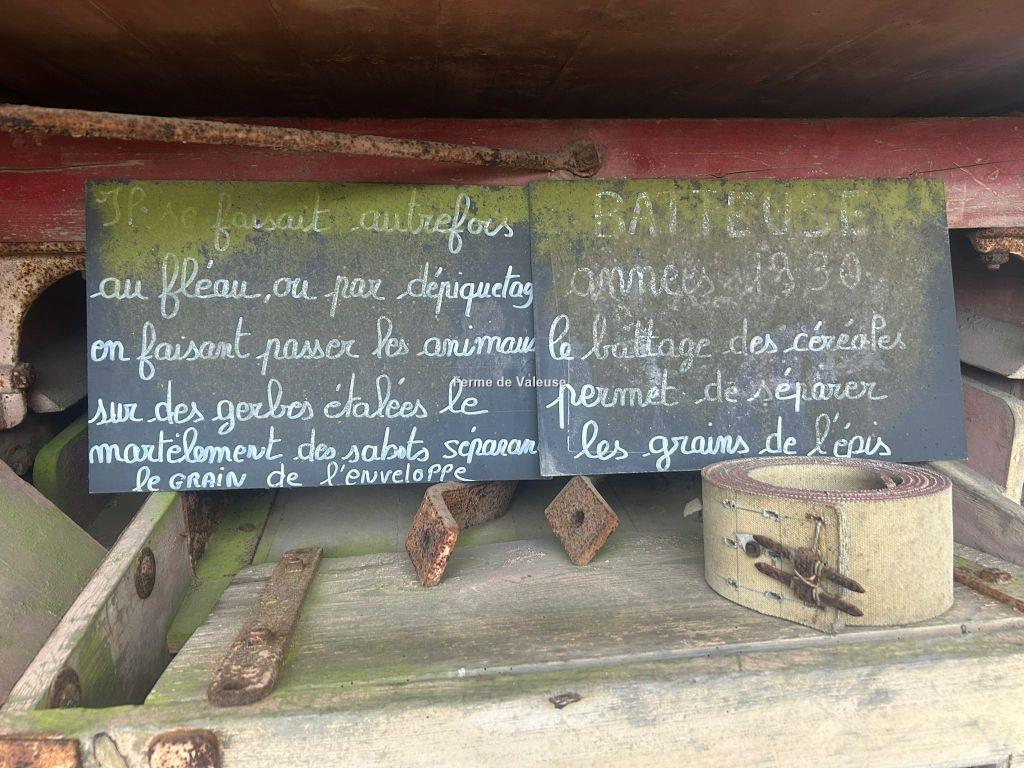 Il se faisait autrefois
au fléau, ou par dépiquetag
en faisant passer les animau
sur des gerbes étalées le
martèlement des sabots séparan
le GRAIN de l'ENVELOPPE
BATTEUSE
années 1930
le battage des céréales
permet de séparer
les grains de l'épis
Ferme de Valeuse